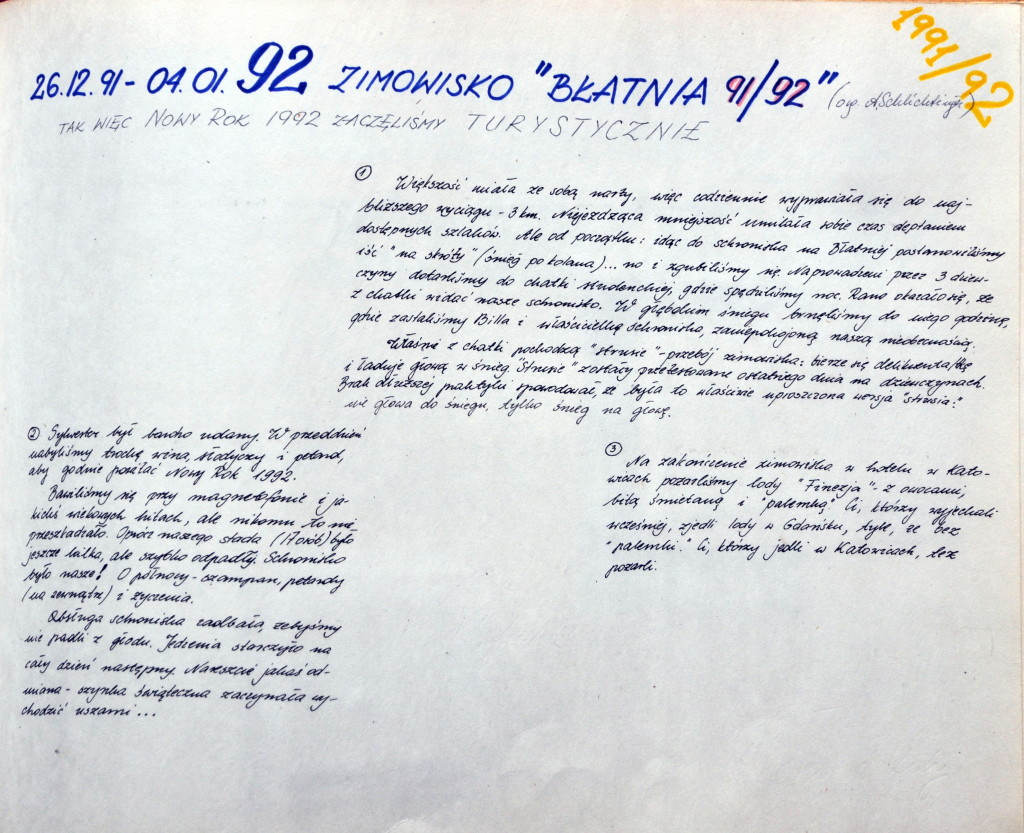 1991/92
26.12.91 - 04.01.92 ZIMOWISKO "BŁATNIA 91/92" (org. A.Schlichtinger)
TAK WIĘC NOWY ROK 1992 ZACZĘLIŚMY TURYSTYCZNIE
① Większość miała ze sobą narty, więc codziennie wyprawiała się do naj-
bliższego wyciągu - 3 km. Niejeżdżąca mniejszość umilała sobie czas deptaniem
dostępnych szlaków. Ale od początku: idąc do schroniska na Błatniej postanowiliśmy
iść "na skróty" (śnieg po kolana)... no i zgubiliśmy się. Naprowadzeni przez 3 dziew-
czyny dotarliśmy do chatki studenckiej, gdzie spędziliśmy noc. Rano okazało się, że
z chatki widać nasze schronisko. W głębokim śniegu brnęliśmy do niego godzinę,
gdzie zastaliśmy Billa i właścicielkę schroniska, zaniepokojoną naszą nieobecnością.
Właśnie z chatki pochodzą "strusie" - przebój zimowiska: bierze się delikwenta/tkę
i ładuje głową w śnieg. "Strusie" zostały przetestowane ostatniego dnia na dziewczynach.
Brak dłuższej praktyki spowodował, że była to właściwie uproszczona wersja "strusia:"
nie głowa do śniegu, tylko śnieg na głowę.
② Sylwester był bardzo udany. W przeddzień
nabyliśmy trochę wina, słodyczy i petard,
aby godnie powitać Nowy Rok 1992.
Bawiliśmy się przy magnetofonie i ja-
kichś wiekowych hitach, ale nikomu to nie
przeszkadzało. Oprócz naszego stada (17 osób) było
jeszcze kilka, ale szybko odpadły. Schronisko
było nasze! O północy - szampan, petardy
(na zewnątrz) i życzenia.
Obsługa schroniska zadbała, żebyśmy
nie padli z głodu. Jedzenia starczyło na
cały dzień następny. Nareszcie jakaś od-
miana - szynka świąteczna zaczynała wy-
chodzić uszami...
③ Na zakończenie zimowiska w hotelu w Kato-
wicach pożarliśmy lody "Finezja" - z owocami,
bitą śmietaną i "palemką". Ci, którzy wyjechali
wcześniej, zjedli lody w Gdańsku, tyle, że bez
"palemki". Ci, którzy jedli w Katowicach, też
pożarli.